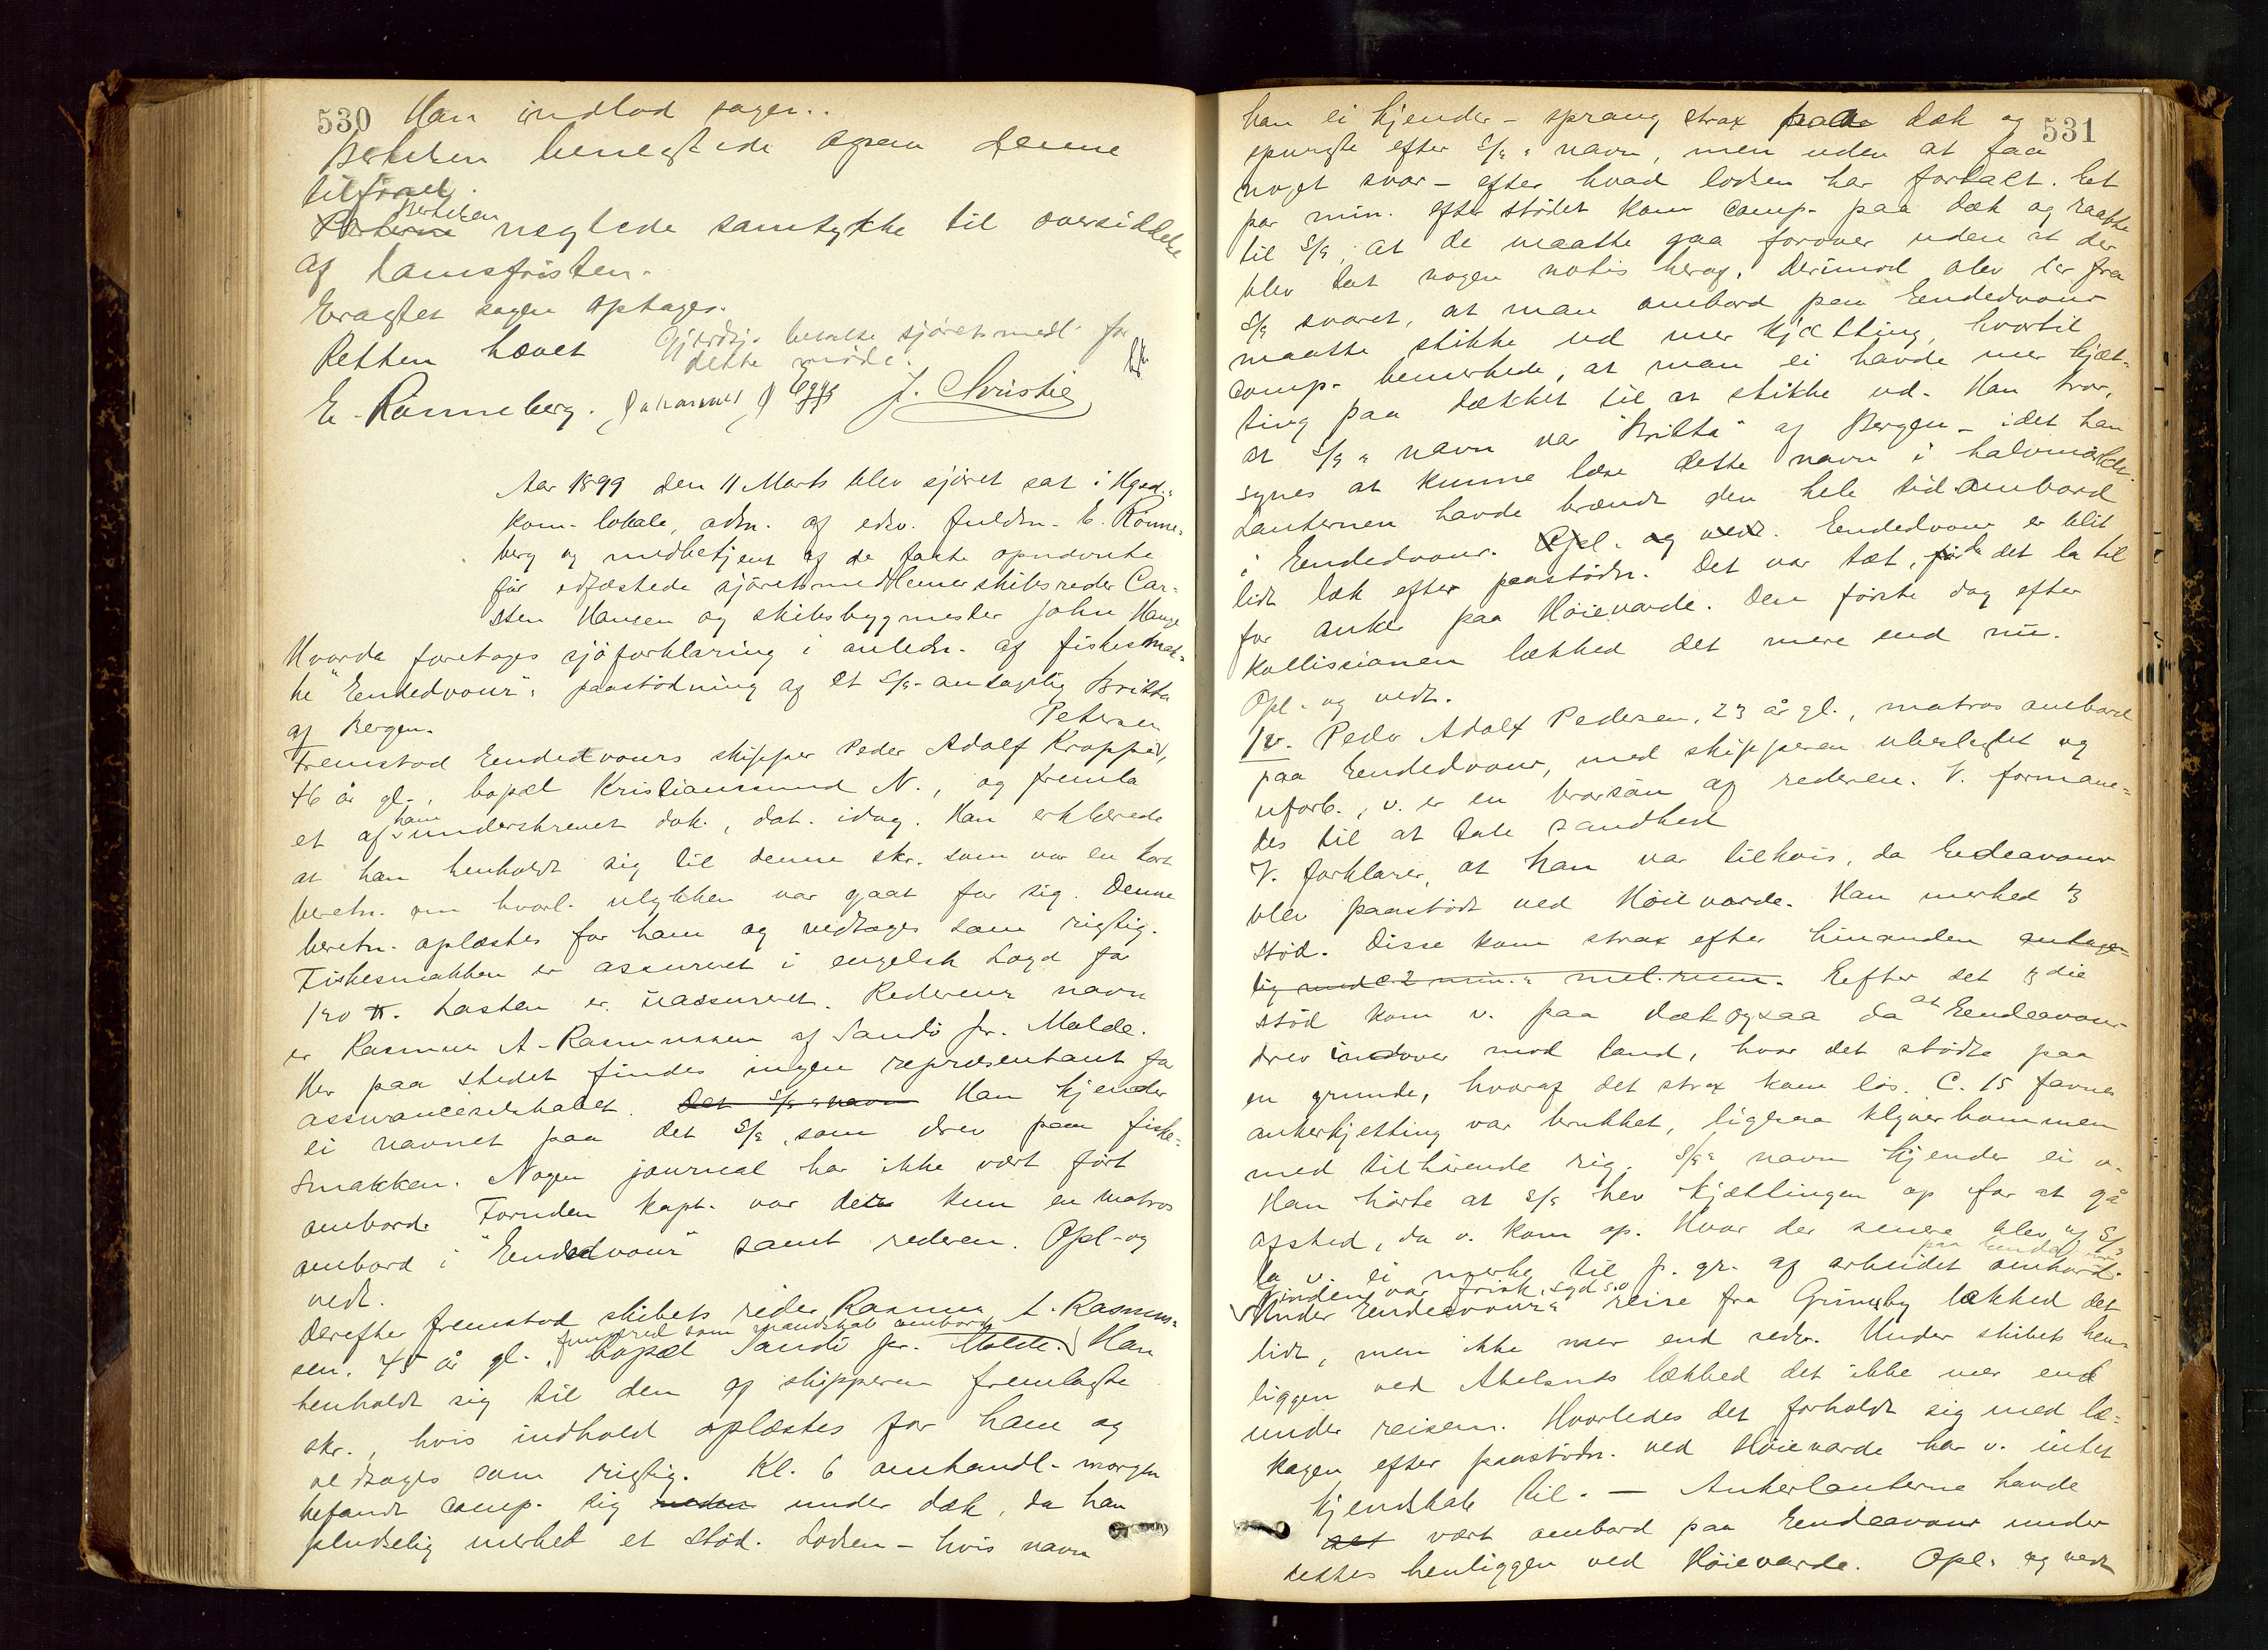 530 Han indlod sagen..
Bertelsen benegtede ogsaa denne
tilførsel.
Parterne Bertelsen negtede samtykke til oversiddelse
af Lamsfristen.
Eragtet sagen optages.
Retten hævet Gjordsj. betalte sjøretsmedl. for
dette møde.
E. Rønneberg. Johannes J. Egge J. Christie
Aar 1899 den 11 Marts blev sjøret sat i Hgsd.s
kom. lokale, adm. af edsv. fuldm. E. Rønne-
berg og medbetjent af de faste opnævnte
før edfæstede sjøretsmedlemmer skibsreder Car-
sten Hansen og skibsbygmester John Hauge
Hvorda foretoges sjøforklaring i anledn. af fiskesmak-
ke "Eendedvour"s paastødning af et S/s. antagelig Britta
af Bergen.
Fremstod Eendedvours skipper Peder Adolf Kroppen, Petersen
46 år gl., bopæl Kristianssund N., og fremla
et af ham underskrevet dok., dat. idag. Han erklærede
at han henholdt sig til denne skr. som var en kort
beretn. om hvorl. ulykken var gaat for sig. Denne
beretn. oplæstes for ham og vedtoges som rigtig.
Fiskesmakken er assureret i engelsk Loyd for
120 £. Lasten er uassureret. Rederens navn
er Rasmus A. Rasmussen af Sandø pr. Molde.
Her paa stedet findes ingen repræsentant for
assuranceselskabet. Det S/s s navn Han kjender
ei navnet paa det S/s, som drev paa fiske-
smakken. Nogen journal har ikke vært ført
ombord. Foruden kapt. var der kun en matros
ombord i "Eendedvour" samt rederen. Opl. og
vedt.
Derefter fremstod skibets reder Rasmus A. Rasmus-
sen, 45 år gl., fungered som mandskab ombord bopæl Sandø pr. Molde. Han
henholdt sig til den af skipperen fremlagte
skr., hvis indhold oplæstes for ham og
vedtoges som rigtig. Kl. 6 omhandl. morgen
befandt comp. sig neden under dæk, da han
pludselig merked et stød. Lodsen – hvis navn
531
han ei kjender – sprang strax paa dæk og
spurgte efter S/s s navn, men uden at faa
noget svar – efter hvad lodsen har fortalt. Et
par min. efter stødet kom comp. paa dæk og raabte
til S/s, at de maatte gaa forover uden at der
blev tat nogen notis herof. Derimod blev der fra
S/s svaret, at man ombord paa Eendedvour
maatte stikke ud mer kjætting, hvortil
comp. bemerkede, at man ei havde mer kjæt-
ting paa dækket til at stikke ud. Han tror,
at S/s s navn var "Britta" af Bergen – idet han
synes at kunne læse dette navn i halvmørket.
Lanternen havde brændt den hele tid ombord
i Eendedvour. Opl. og vedt. Eendedvour er blit
lidt læk efter paastødn. Det var tæt, før det la til
for anker paa Høievarde. Den første dag efter
kollissionen lækked det mere end nu.
Opl. og vedt.
1v. Peder Adolf Pedersen, 23 år gl., matros ombord
paa Eendedvour, med skipperen ubeslegtet og
uforb., v. er en brorsøn af rederen. V. formane-
des til at tale sandhed
V. forklarer, at han var tilkøis, da Eendeavour
blev paastødt ved Høievarde. Han merked 3
stød. Disse kom strax efter hinanden antage-
lig med c 2 min.s mel.rum. Eefter det 3die
stød kom v. paa dæk og saa da at Eendeavour
drev indover mod land, hvor det stødte paa
en grunde, hvoraf det strax kom løs. C. 15 favne
ankerkjetting var brukket, ligesaa klyverbommen
med tilhørende rig. S/s s navn kjender ei v.
Han hørte at S/s hev kjættingen op for at gå
afsted, da v. kom op. Hvor der senere blev af S/s
la v. ei merke til p. gr. af arbeidet ombord. paa Eended
Vinden var frisk, syd s.o
Under Eendeavours reise fra Grimsby lækked det
lidt, men ikke mer end sedv. Under skibets hen-
liggen ved Akelsnds lækked det ikke mer end
under reisen. Hvorledes det forholdt sig med læ-
kagen efter paastødn. ved Høievarde har v. intet
kjendskab til. – Ankerlanterne havde
det vært ombord paa Eendeavour under
dettes henliggen ved Høievarde. Opl. og vedt